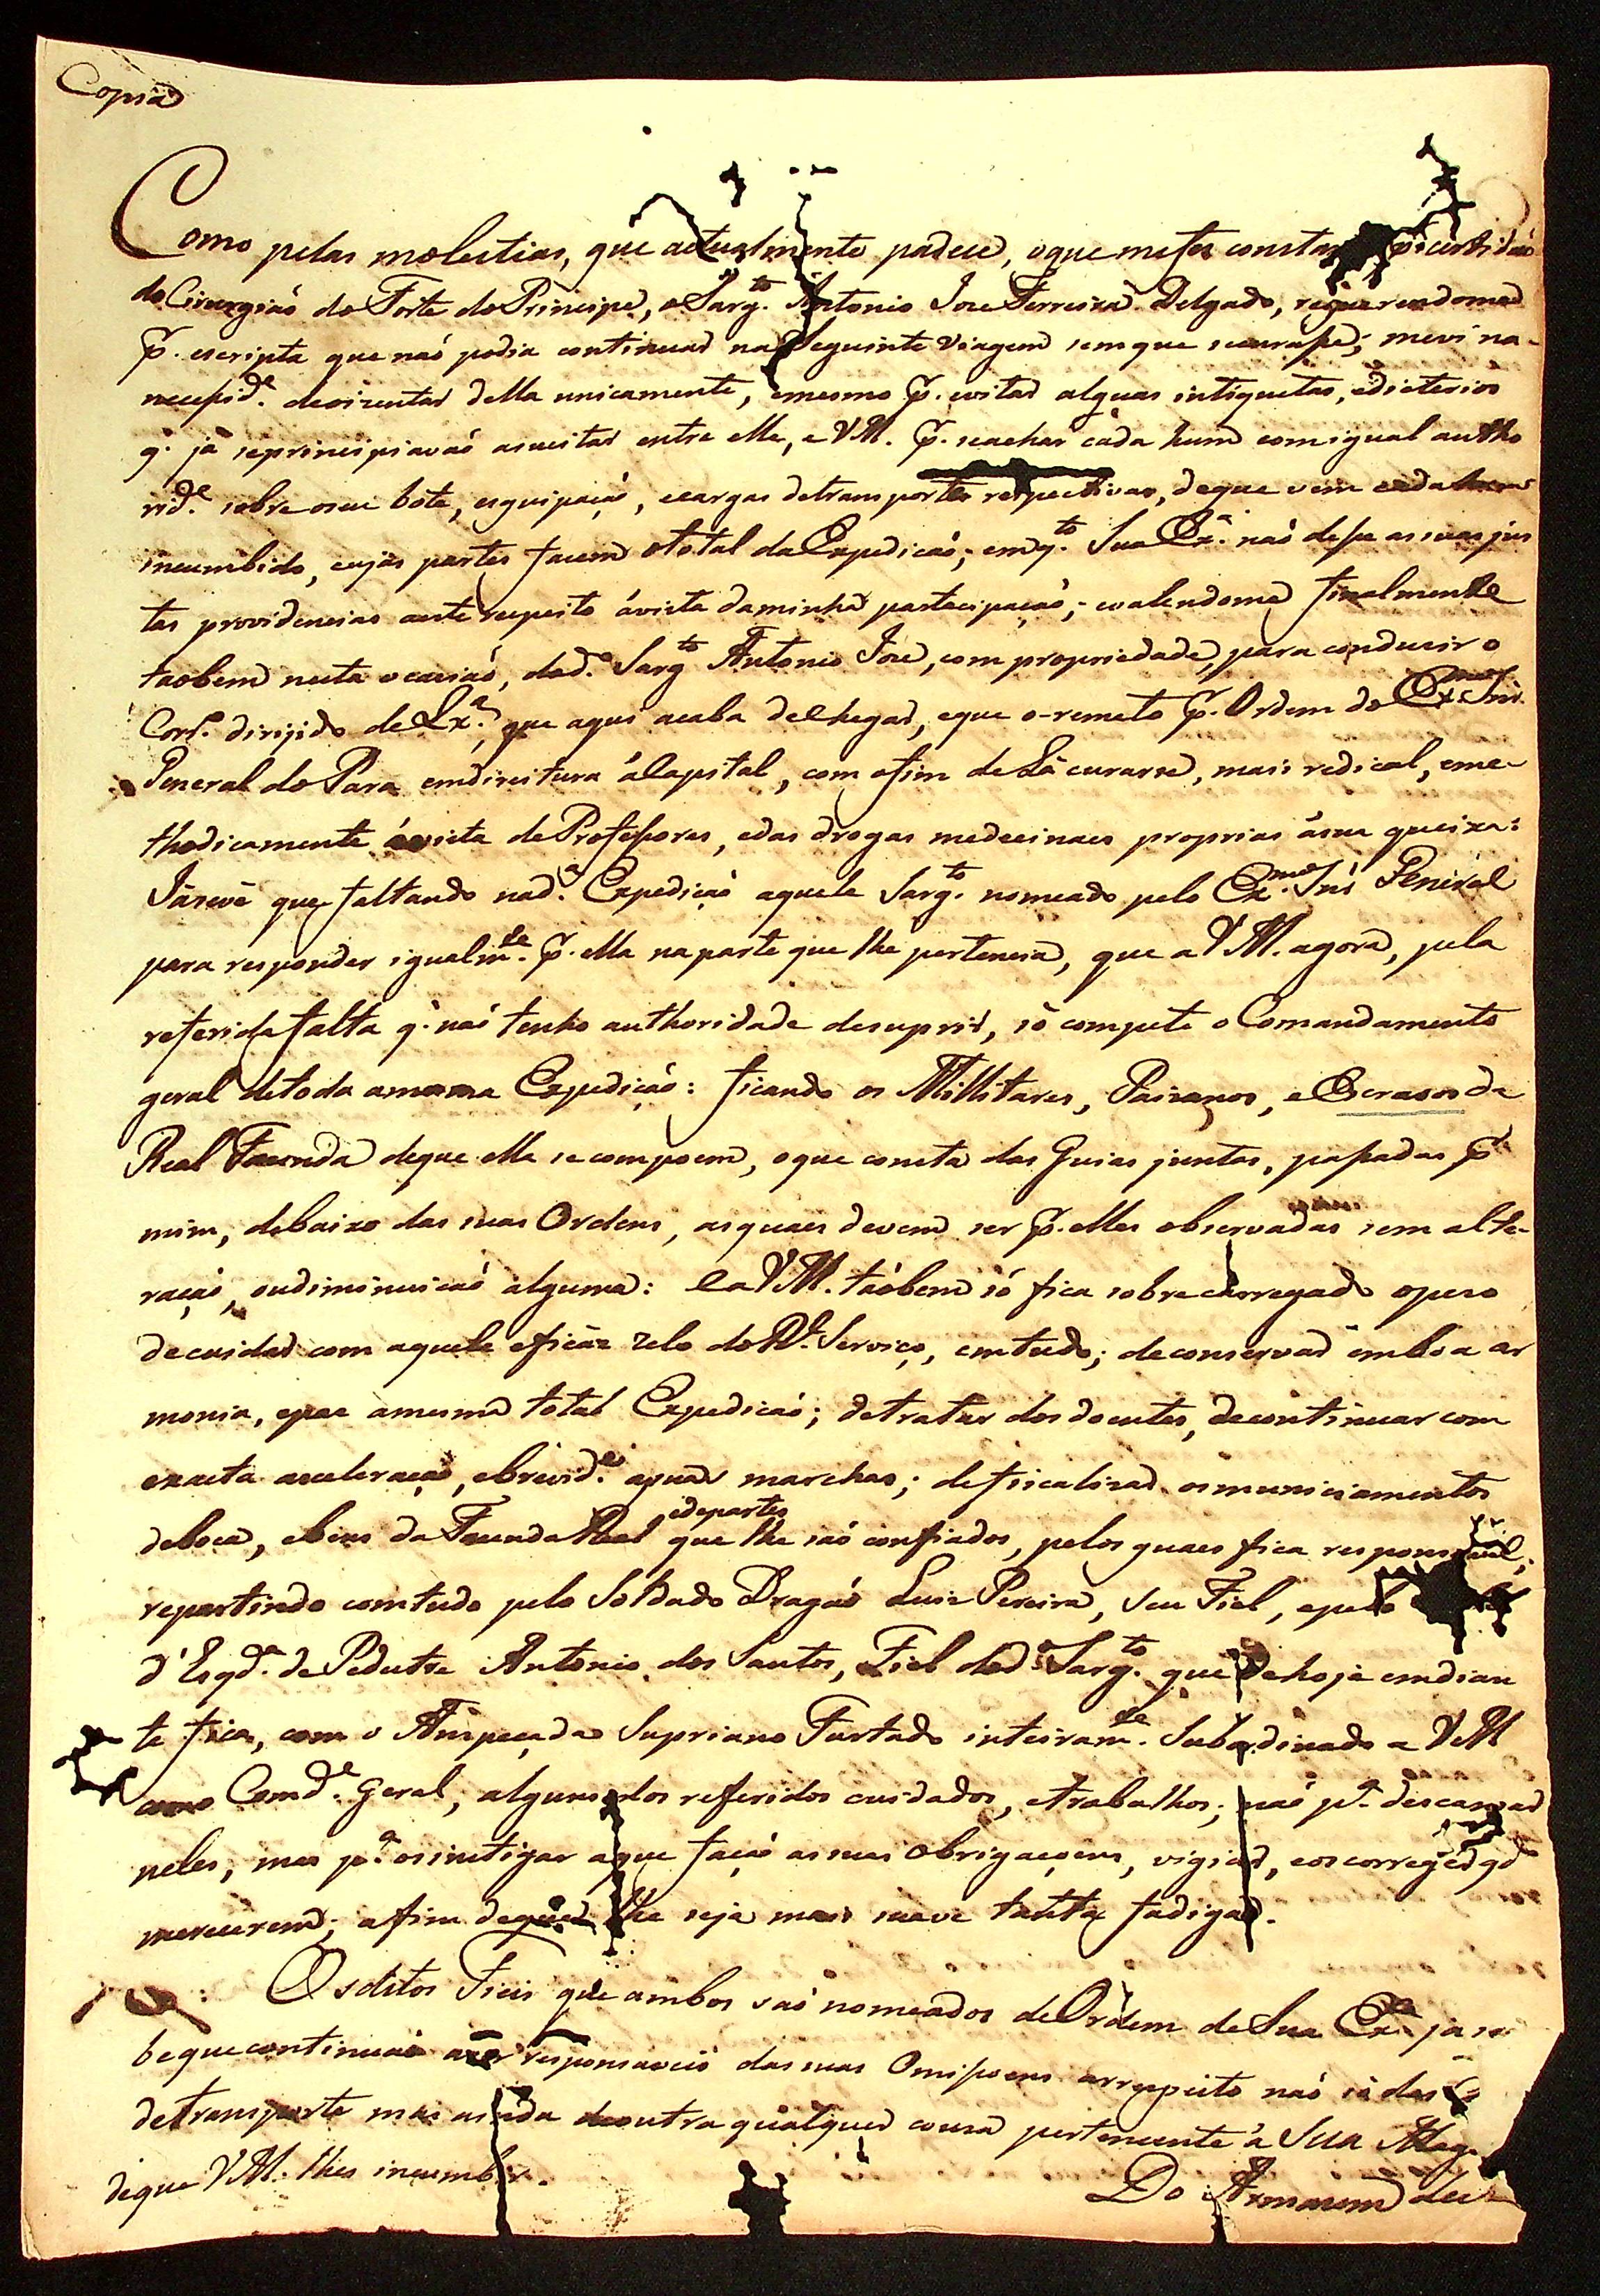 Copia
Como pelas molestias, que actualmente padece, o que me fez constar por certidaó
do Cirurgiaó do Forte do Principe, o Sarg.to Antonio Joze Ferreira Delgado, requerendome
p. escripta que naó podia continuar na Seguinte viagem sem que se curasse; me vi na
necessid.e de o izentar della unicamente, e mesmo p. evitar alguas intiquetas, e dicterios
q. já se principiavaó a suscitar entre elle, e VM. p. se achar cada hum com igual autho
rid.e sobre o seu bote, esquipaçaó, e cargas de transportes respectivas, de que vem cada hum
incumbido, cujas partes fazem o total da Expediçaó; emq.to Sua Ex.a naó desse as suas jus
tas providencias a este respeito á vista da minha participaçaó; e valendome finalmente
taobem nesta ocaziaó, do d.o Sarg.to Antonio Joze, com propriedade, para conduzir o
Corr.o dirijido de Lx.a, que aqui acaba de chegar, e que o remeto p. Ordem do Ex.mo Snr.
General do Pará em direitura á Capital, com o fim de Lá curarse, mais redical, e me-
thodicamente á vista de Professores, e das drogas medecinaes proprias á sua queixa:
Já se vê que faltando na d.a Expediçaó aquele Sarg.to nomeado pelo Ex.mo Snr General
para responder igualm.te p. ella na parte que lhe pertencia, que a VM. agora, pela
referida falta q. naó tenho authoridade de suprir, só compete o Comandamento
geral de toda a mesma Expediçaó: ficando os Millitares, Paizanos, e Escravos da
Real Fazenda de que ella se compoem, o que consta das Guias juntas, passadas p.
mim, debaixo das suas Ordens, as quaes devem ser p. elles observadas sem alte-
raçaó, ou diminuiçaó alguma: e a VM. taóbem só fica sobrecarregado o pezo
de cuidar com aquele eficaz zelo do R.l Serviço, em tudo; de conservar em boa ar
monia, e paz a mesma total Expediçaó; de tratar dos doentes, de continuar com
exacta aceleraçaó, e brevid.e as suas marchas; de fiscalizar os municiamentos
de boca, e bens da Fazenda Real e departes que lhe saó confiados, pelos quaes fica responsavel;
repartindo comtudo pelo Soldado Dragaó Luiz Pereira, seu Fiel, e pelo
d'Esqd.a de Pedestre Antonio dos Santos, Fiel do d.o Sarg.to que de hoje em dian
te fica, com o Anspeçada Supriano Furtado inteiram.te Subordinado a VM
como Comd.e Geral, alguns dos referidos cuidados, e trabalhos; naó p.a descansar
neles, mas p.a os instigar a que façaó as suas obrigaçoens, vigiar, e os corregir qd.o
merecerem; a fim de que lhe seja mais suave tanta fadiga.
Os ditos Fieis que ambos saó nomeados de Ordem de Sua Ex.a já se
be que continuaó a ser responsaveis das suas Omissoens a respeito naó só das
de transporte mas ainda de outra qualquer couza pertencente a Sua Mag.
de que VM. lhes incumbir.
Do Armazem de